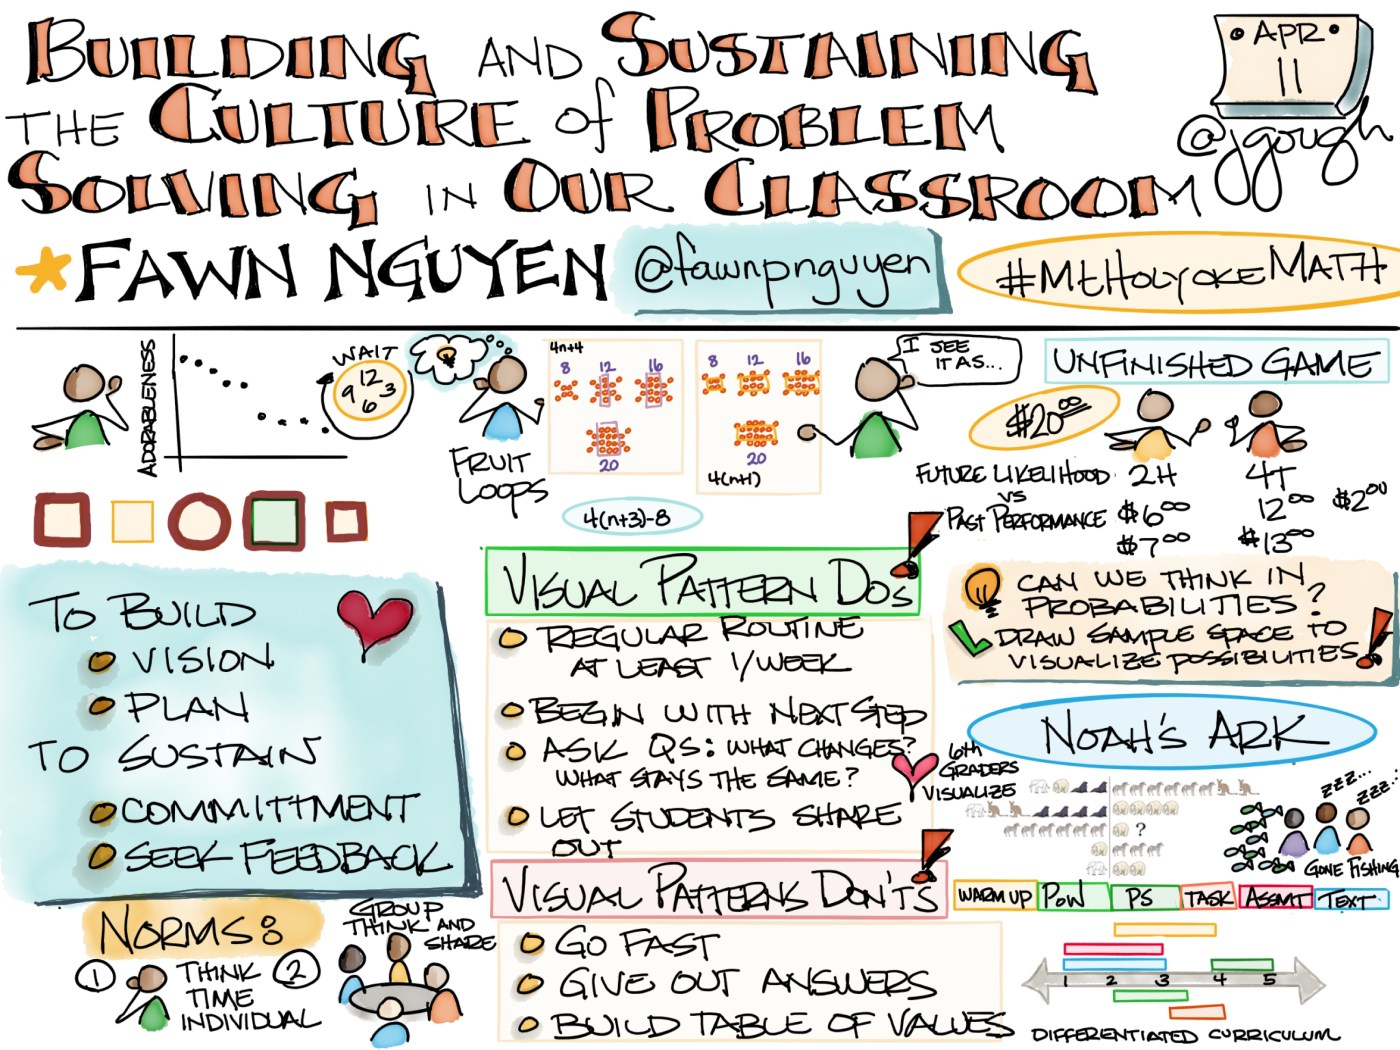 BUILDING AND SUSTAINING
THE CULTURE of PROBLEM
SOLVING IN OUR CLASSROOM
APR
11
@jgough
FAWN NGUYEN
@fawnpnguyen
#MtHolyokeMATH
ADORABLENESS
WAIT
9 12 3
6
FRUIT
LOOPS
4n+4
8 12 16
20
8 12 16
20
4(n+1)
4(n+3)-8
I SEE
IT AS...
UNFINISHED GAME
$20.00
FUTURE LIKELIHOOD
VS
PAST PERFORMANCE
2H 4T
$6.00 12.00 $2.00
$7.00 $13.00
CAN WE THINK IN
PROBABILITIES?
DRAW SAMPLE SPACE TO
VISUALIZE POSSIBILITIES
TO BUILD
VISION
PLAN
TO SUSTAIN
COMMITTMENT
SEEK FEEDBACK
VISUAL PATTERN DOs
REGULAR ROUTINE
AT LEAST 1/WEEK
BEGIN WITH NEXT STEP
ASK QS: WHAT CHANGES?
WHAT STAYS THE SAME?
LET STUDENTS SHARE
OUT
VISUAL PATTERNS DON'TS
GO FAST
GIVE OUT ANSWERS
BUILD TABLE OF VALUES
NOAH'S ARK
6th
GRADERS
VISUALIZE
?
ZZZ...
ZZZ...
GONE FISHING
NORMS:
1 THINK
TIME
INDIVIDUAL
2 GROUP
THINK AND
SHARE
WARM UP PoW PS TASK ASSMT TEXT
1 2 3 4 5
DIFFERENTIATED CURRICULUM